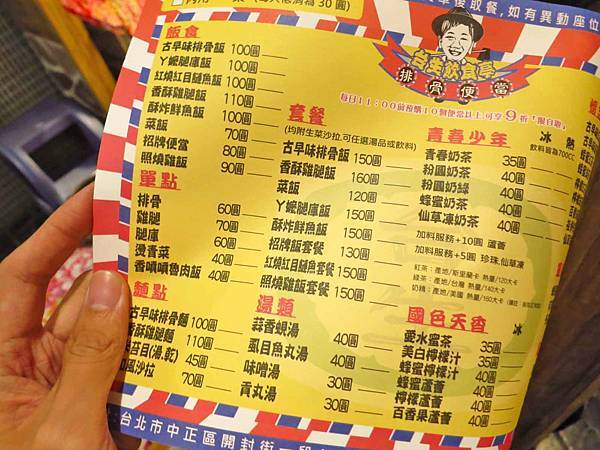 飯食
古早味排骨飯 100圓
ㄚ嬤腿庫飯 100圓
紅燒紅目鰱魚飯 100圓
香酥雞腿飯 110圓
酥炸鮮魚飯 100圓
菜飯 70圓
招牌便當 80圓
照燒雞飯 90圓
單點
排骨 60圓
雞腿 70圓
腿庫 60圓
燙青菜 40圓
香噴噴魯肉飯 40圓
麵點
古早味排骨麵 100圓
香酥雞腿麵 110圓
苔目(湯,乾) 45圓
風沙拉 70圓
套餐
(均附生菜沙拉,可任選湯品或飲料)
古早味排骨飯 150圓
香酥雞腿飯 160圓
菜飯 120圓
ㄚ嬤腿庫飯 150圓
酥炸鮮魚飯 150圓
招牌飯套餐 130圓
紅燒紅目鰱魚套餐 150圓
照燒雞飯套餐 150圓
湯類
蒜香蜆湯 40圓
虱目魚丸湯 40圓
味噌湯 30圓
貢丸湯 30圓
後取餐,如有異動座位
排骨便當
每日11:00前預購10個便當以上可享9折「限自取」
青春少年 冰 熱
飲料皆為700CC
青春奶茶 35圓
粉圓奶茶 40圓
粉圓奶綠 40圓
蜂蜜奶茶 40圓
仙草凍奶茶 40圓
加料服務+10圓 蘆薈
加料服務+5圓 珍珠.仙草凍
紅茶:產地/斯里蘭卡 熱量/120大卡
綠茶:產地/台灣 熱量/140大卡
奶精:產地/美國 熱量/160大卡
國色天香 冰
愛水蜜茶 35圓
美白檸檬汁 35圓
蜂蜜檸檬汁 40圓
蜂蜜蘆薈 40圓
檸檬蘆薈 40圓
百香果蘆薈 40圓
台北市中正區開封街一段